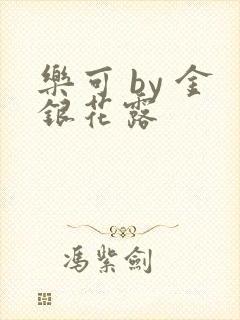 樂可 by 金
銀花露
馮紫劍